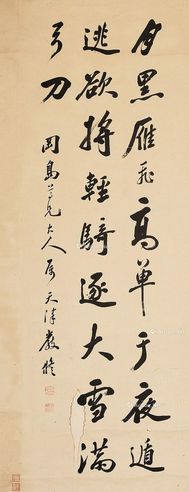 月黑雁飛高單于夜遁
逃欲將輕騎逐大雪滿
弓刀
岡島兄大人属 天津嚴修